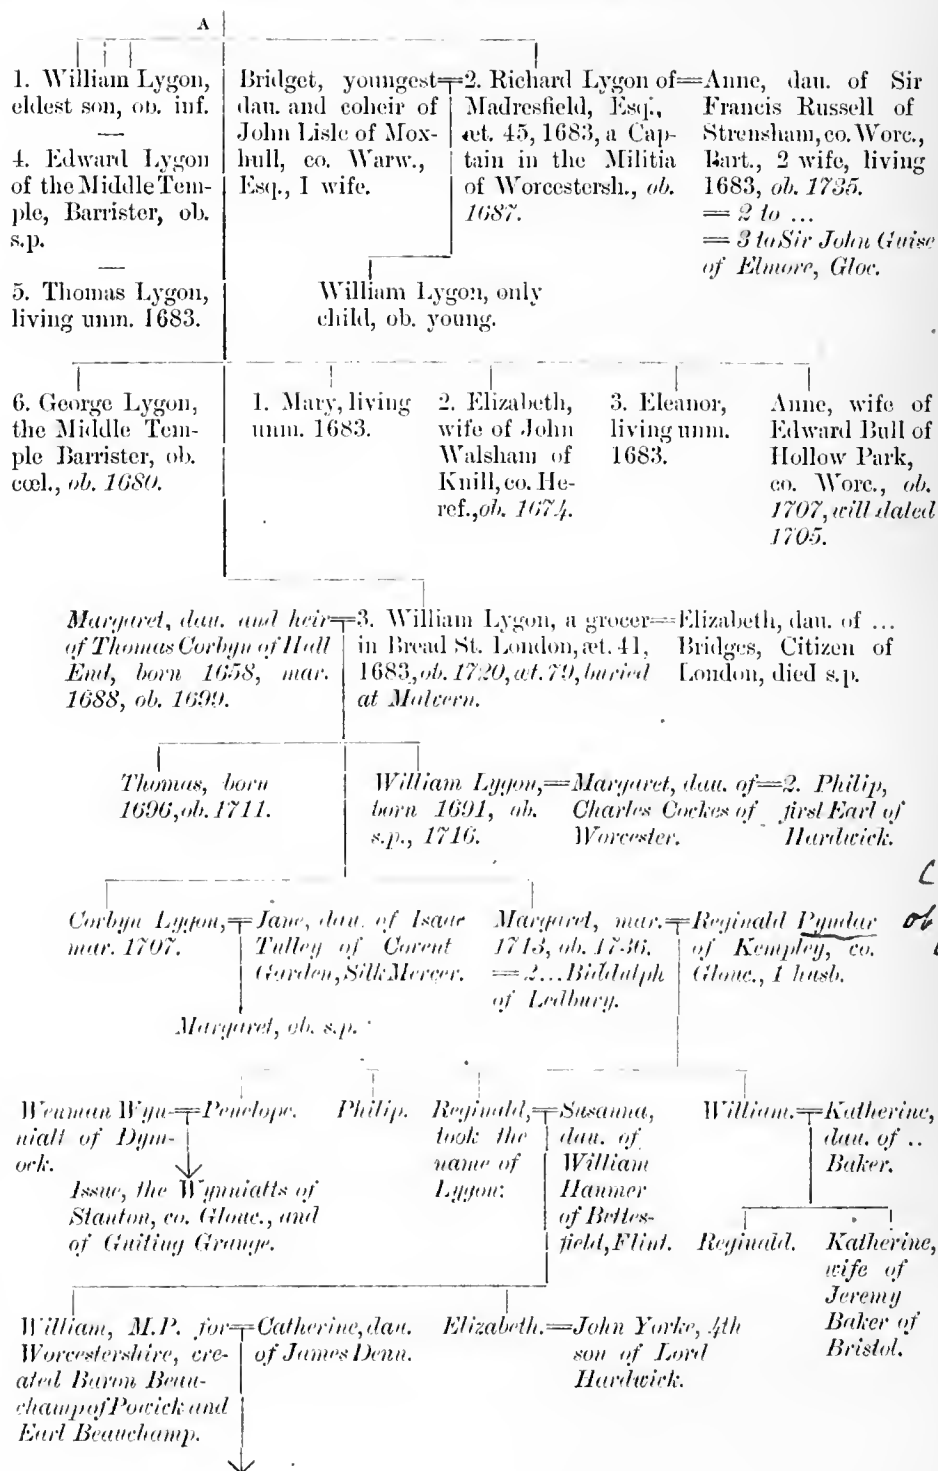 A
1. William Lygon,
eldest son, ob. inf.
—
4. Edward Lygon
of the Middle Tem-
ple, Barrister, ob.
s.p.
—
5. Thomas Lygon,
living unm. 1683.
Bridget, youngest
dau. and coheir of
John Lisle of Mox-
hull, co. Warw.,
Esq., 1 wife.
2. Richard Lygon of
Madresfield, Esq.,
æt. 45, 1683, a Cap-
tain in the Militia
of Worcestersh., ob.
1687.
Anne, dau. of Sir
Francis Russell of
Strensham, co. Worc.,
Bart., 2 wife, living
1683, ob. 1735.
= 2 to ...
= 3 to Sir John Guise
of Elmore, Gloc.
William Lygon, only
child, ob. young.
6. George Lygon,
the Middle Tem-
ple Barrister, ob.
cœl., ob. 1680.
1. Mary, living
unm. 1683.
2. Elizabeth,
wife of John
Walsham of
Knill, co. He-
ref., ob. 1674.
3. Eleanor,
living unm.
1683.
Anne, wife of
Edward Bull of
Hollow Park,
co. Worc., ob.
1707, will dated
1705.
Margaret, dau. and heir
of Thomas Corbyn of Hall
End, born 1658, mar.
1688, ob. 1699.
3. William Lygon, a grocer
in Bread St. London, æt. 41,
1683, ob. 1720, æt. 79, buried
at Malvern.
Elizabeth, dau. of ...
Bridges, Citizen of
London, died s.p.
Thomas, born
1696, ob. 1711.
William Lygon,
born 1691, ob.
s.p., 1716.
Margaret, dau. of
Charles Cockes of
Worcester.
2. Philip,
first Earl of
Hardwick.
Corbyn Lygon,
mar. 1707.
Jane, dau. of Isaac
Tulley of Covent
Garden, Silk Mercer.
Margaret, mar.
1713, ob. 1736.
= 2... Biddulph
of Ledbury.
Reginald Pyndar
of Kempley, co.
Glouc., 1 husb.
ob
Margaret, ob. s.p.
Wenman Wyn-
niatt of Dym-
ock.
Penelope.
Philip.
Reginald,
took the
name of
Lygon.
Susanna,
dau. of
William
Hanmer
of Bettes-
field, Flint.
William.
Katherine,
dau. of ..
Baker.
Issue, the Wynniatts of
Stanton, co. Glouc., and
of Guiting Grange.
Reginald.
Katherine,
wife of
Jeremy
Baker of
Bristol.
William, M.P. for
Worcestershire, cre-
ated Baron Beau-
champ of Powick and
Earl Beauchamp.
Catherine, dau.
of James Denn.
Elizabeth.
John Yorke, 4th
son of Lord
Hardwick.